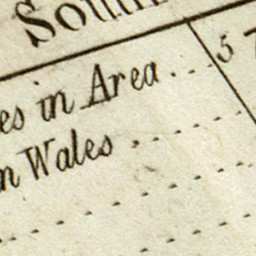 es in Area . . . 5
n Wales